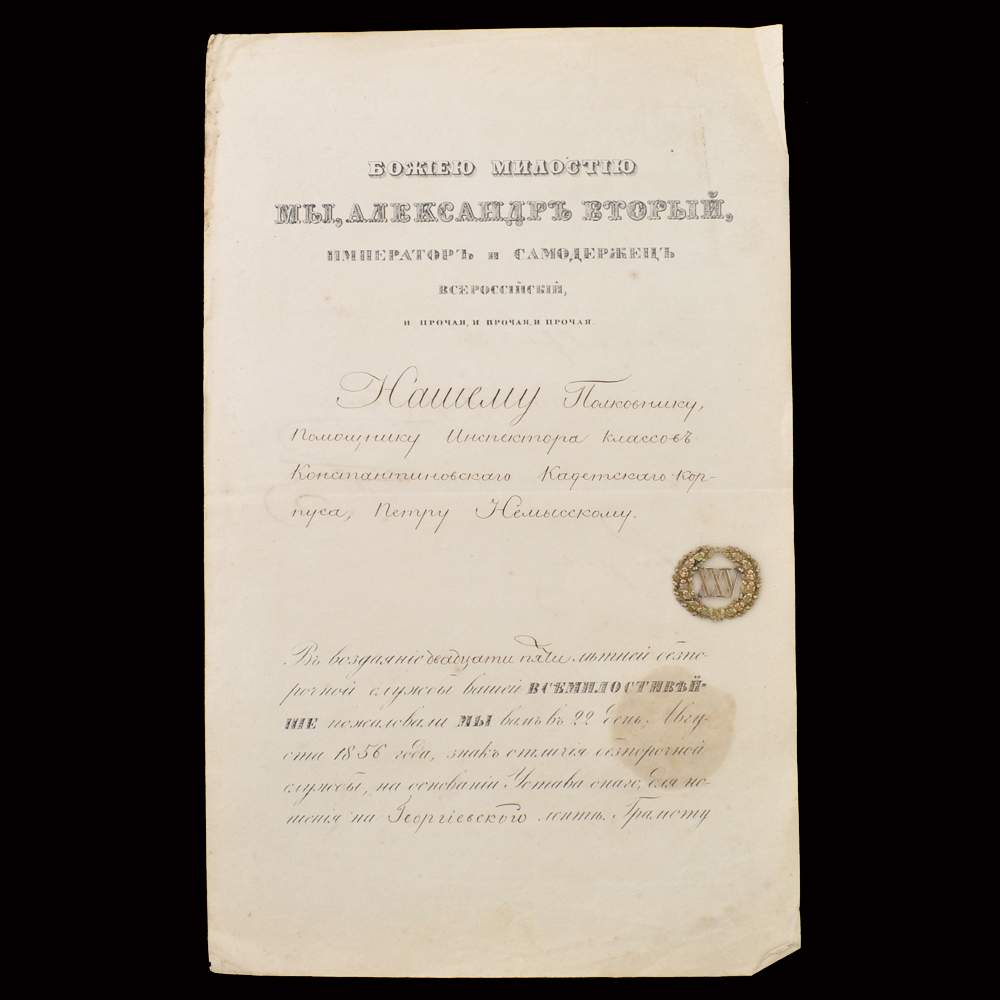 БОЖІЕЮ МИЛОСТІЮ
МЫ, АЛЕКСАНДРЪ ВТОРЫЙ,
ИМПЕРАТОРЪ и САМОДЕРЖЕЦЪ
ВСЕРОССІЙСКІЙ,
И ПРОЧАЯ, И ПРОЧАЯ, И ПРОЧАЯ.
Нашему Полковнику,
Помощнику Инспектора классовъ
Константиновскаго Кадетскаго Кор-
пуса, Петру Немысскому.
XXV
Въ воздаяніе двадцати пяти лѣтней безпо-
рочной службы вашей ВСЕМИЛОСТИВѢЙ-
ШЕ пожаловали МЫ вамъ въ 22 день Авгу-
ста 1856 года, знакъ отличія безпорочной
службы, на основаніи Устава онаго, для но-
шенія на Георгіевской лентѣ. Грамоту